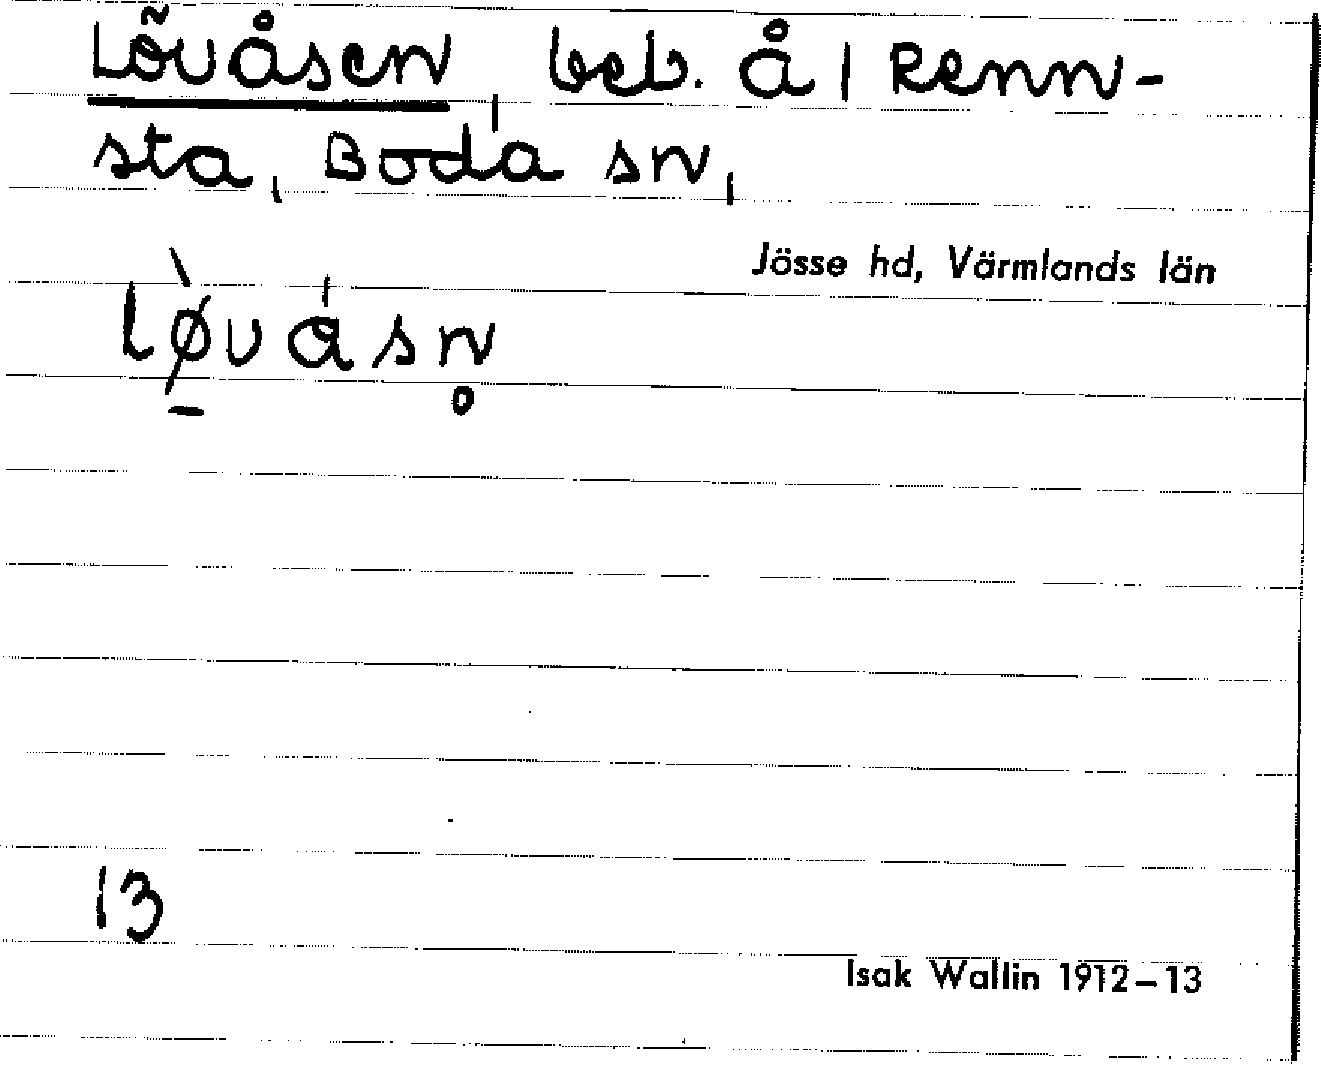 Lövåsen, beb. å / Renn-
sta, Boda sn,
Jösse hd, Värmlands län
lø̀våsn̥
13
Isak Wallin 1912–13